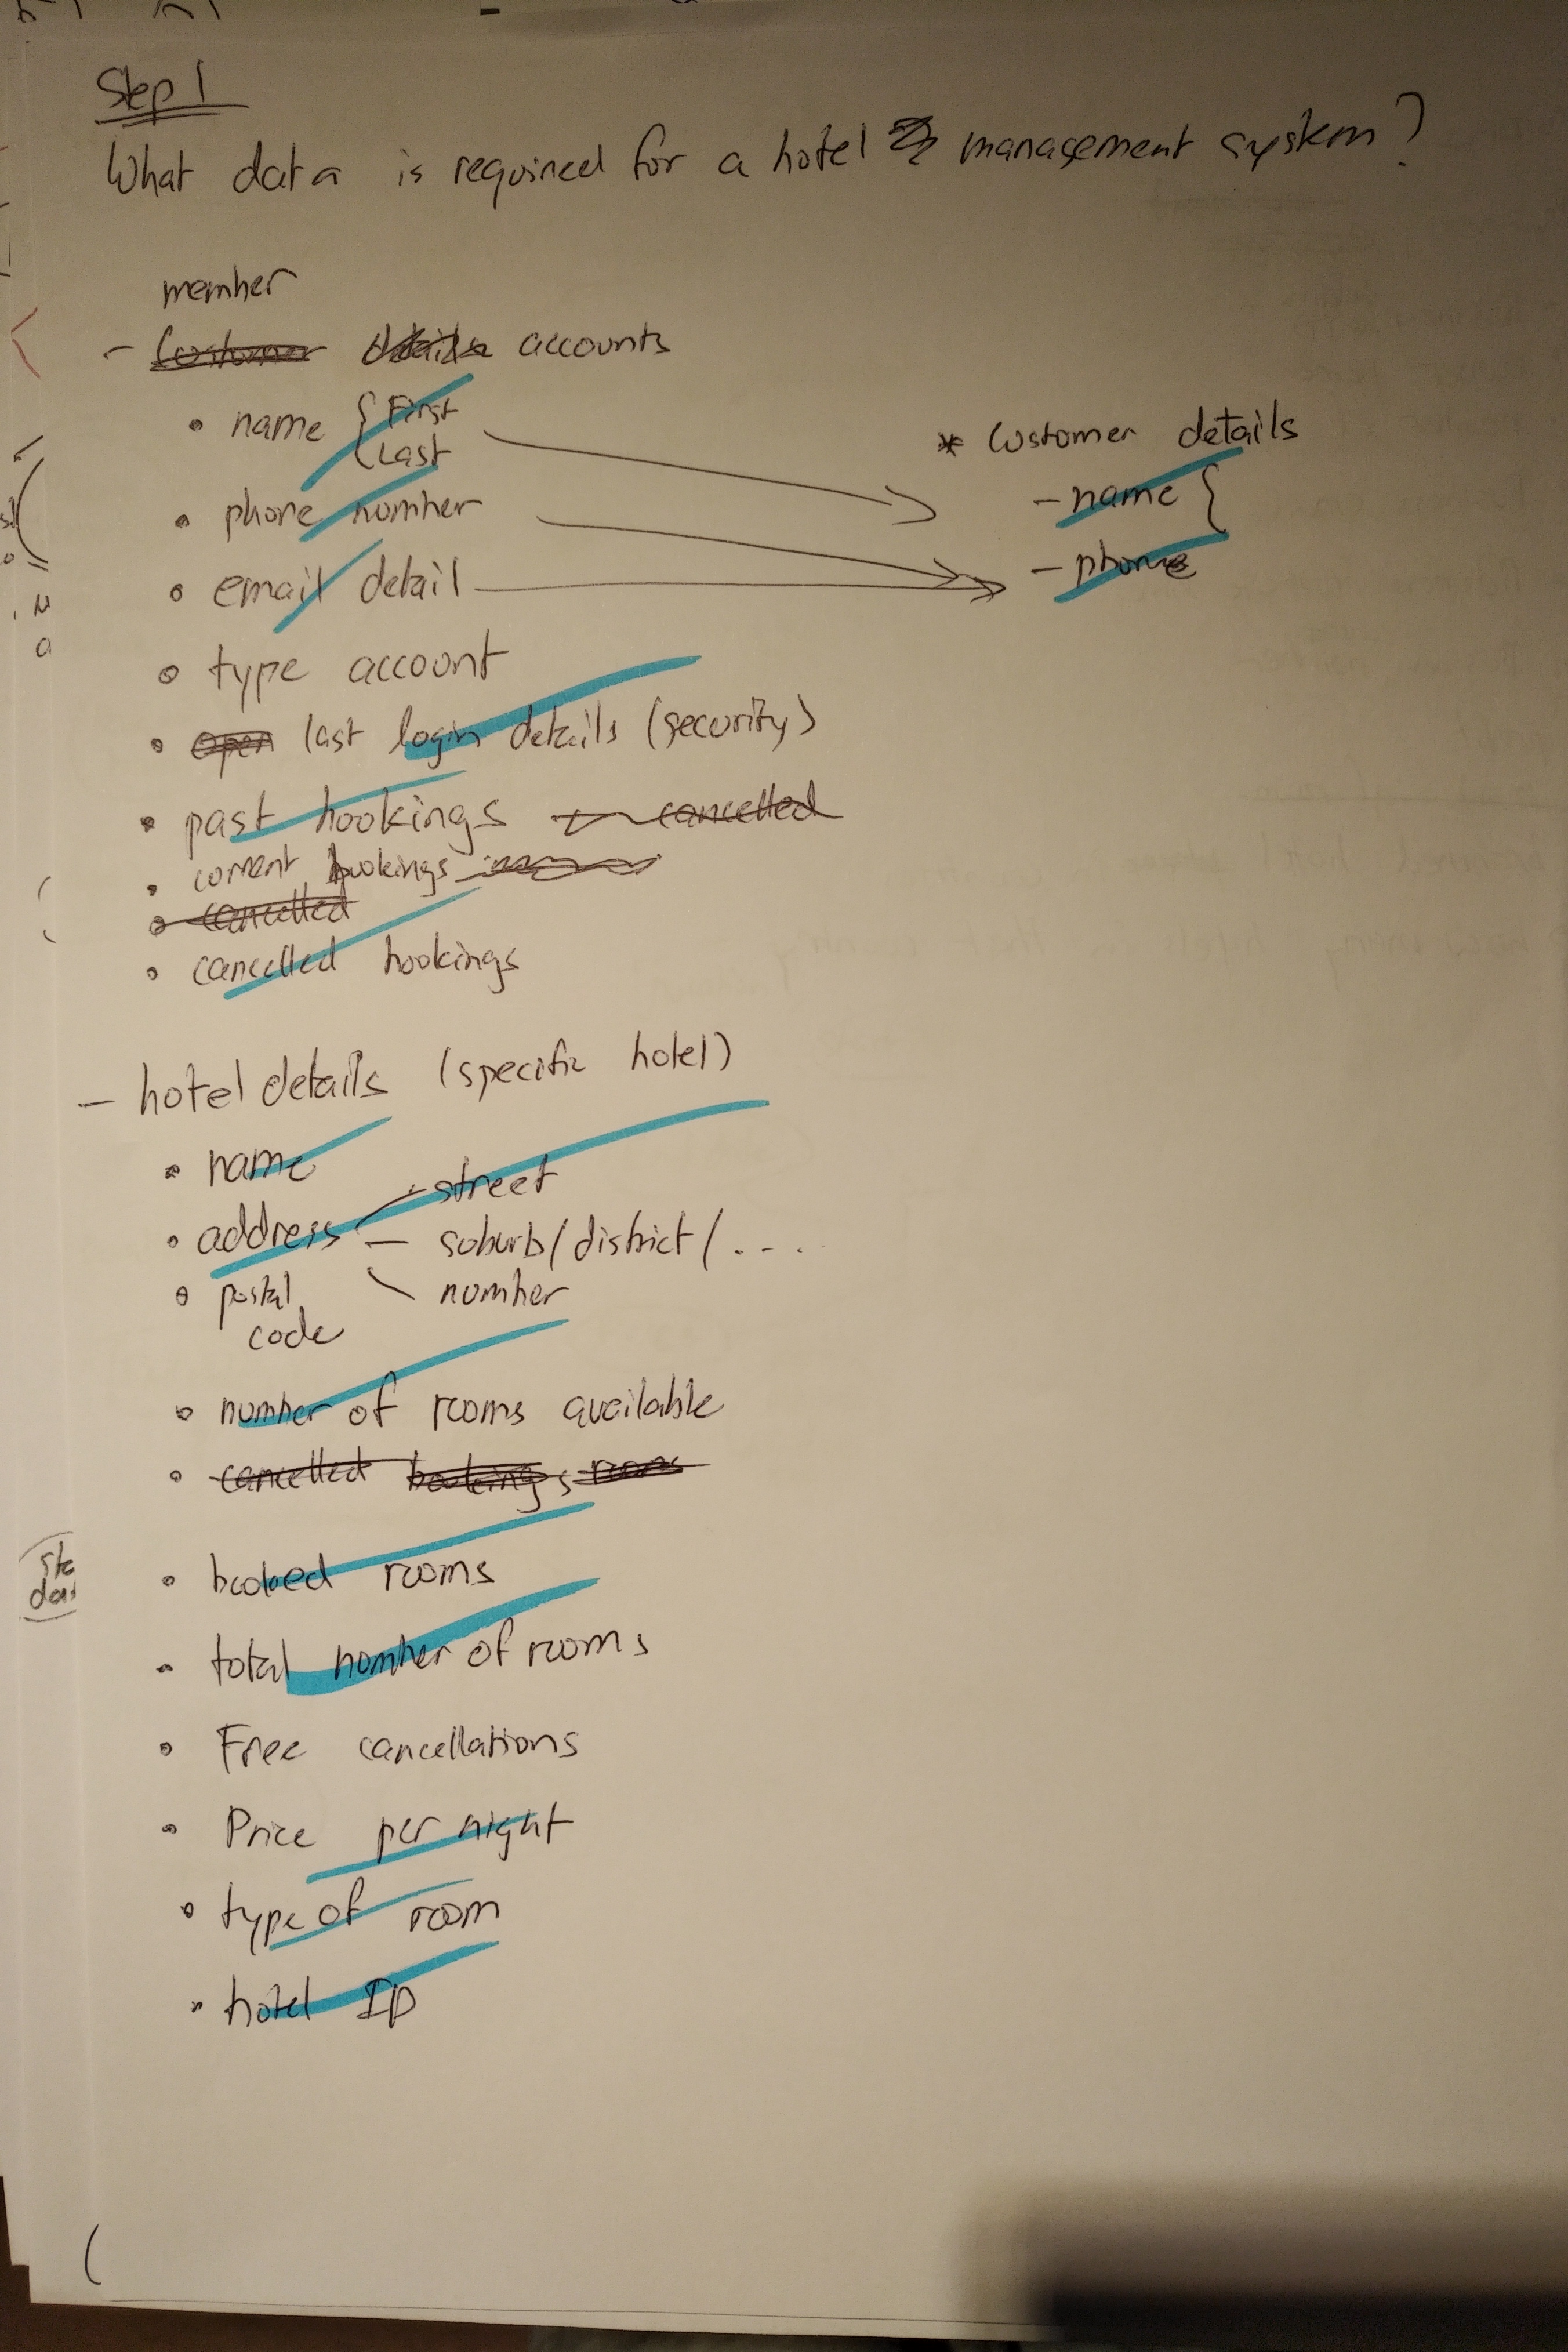 Step 1
What data is required for a hotel management system?
member
- Customer details accounts
• name { First
Last
• phone number
• email detail
• type account
• open last login details (security)
• past bookings cancelled
• current bookings
• cancelled
• cancelled bookings
* Customer details
- name {
- phone
- hotel details (specific hotel)
• name
• address - street
- suburb/district/....
number
• postal
code
• number of rooms available
• cancelled bookings rooms
• booked rooms
• total number of rooms
• Free cancellations
• Price per night
• type of room
• hotel ID